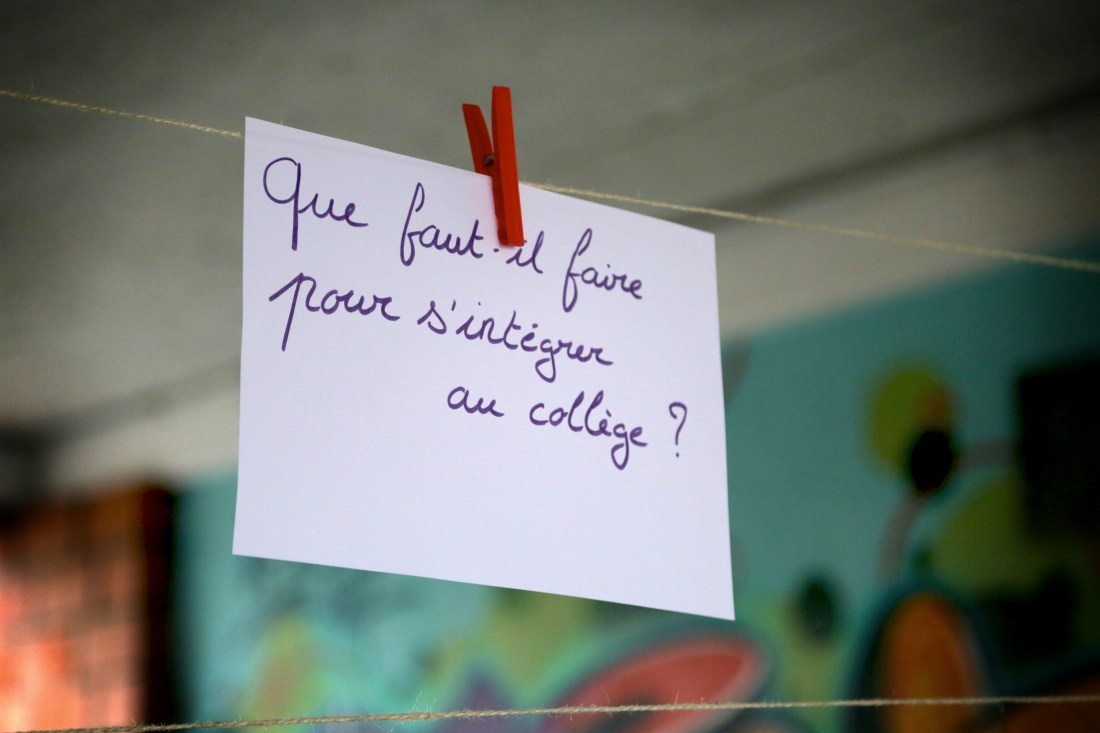 Que faut-il faire
pour s'intégrer
au collège ?